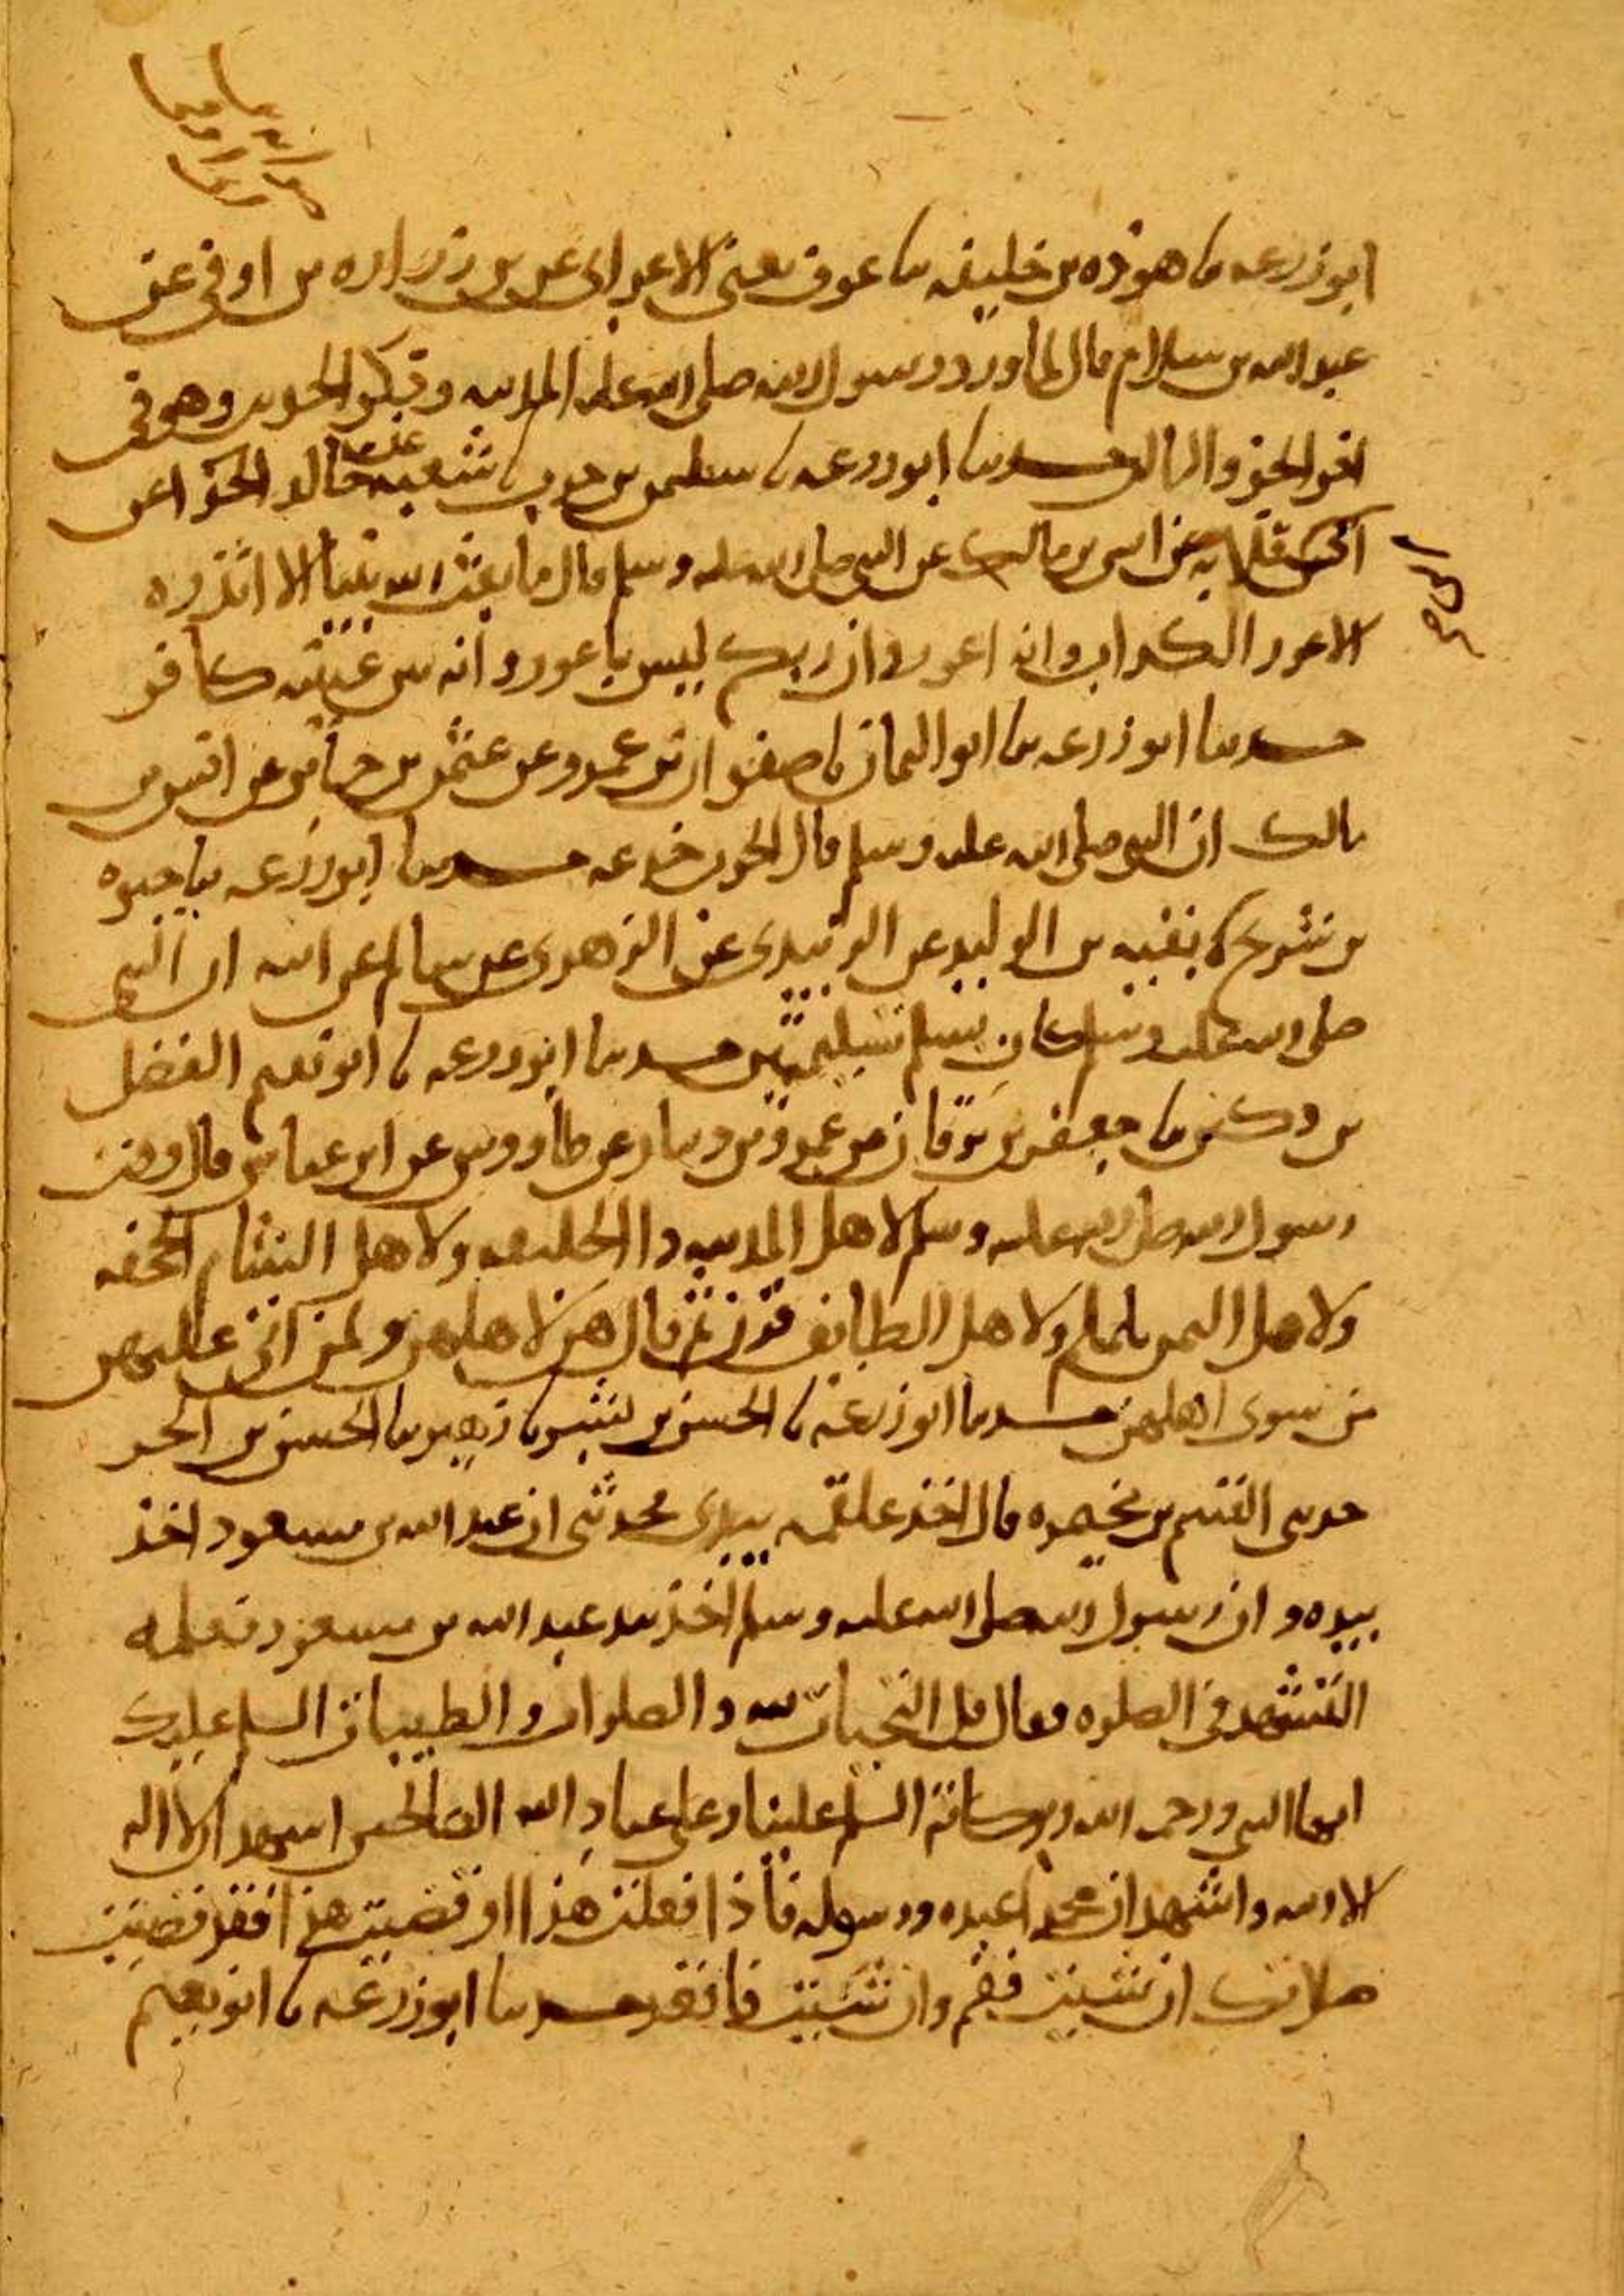 ابو زرعه نا هوذه بن خليفه نا عوف يعنى الاعرابى عن زراره بن اوفى عن
عبد الله بن سلام قال لما ورد رسول الله صلى الله عليه المدينه وذكر الحديث وهو فى
حدثنا ابو زرعه نا سليمن بن حرب نا شعبه عن خالد الحذا عن
ابى قلابه عن انس بن مالك عن النبى صلى الله عليه وسلم قال ما بعث الله نبيا الا انذره
الاعور الكذاب وانه اعور وان ربكم ليس باعور وانه بين عينيه كافر
حدثنا ابو زرعه نا ابو اليمان نا صفوان بن عمرو عن عثمن بن جابر عن انس بن
مالك ان النبى صلى الله عليه وسلم قال الحرب خدعه حدثنا ابو زرعه نا حيوه
بن شريح نا بقيه بن الوليد عن الزبيدى عن الزهرى عن سالم عن ابيه ان النبى
صلى الله عليه وسلم كان يسلم تسليمتين حدثنا ابو زرعه نا ابو نعيم الفضل
بن دكين نا جعفر بن برقان عن عمرو بن دينار عن طاووس عن ابن عباس قال وقت
رسول الله صلى الله عليه وسلم لاهل المدينه ذا الحليفه ولاهل الشام الجحفه
ولاهل اليمن يلملم ولاهل الطايف قرن ثم قال هن لاهلهن ولمن اتى عليهن
من سوى اهلهن حدثنا ابو زرعه نا الحسن بن بشر نا زهير نا الحسن بن الحر
حدثنى القسم بن مخيمره قال اخذ علقمه بيدى فحدثنى ان عبد الله بن مسعود اخذ
بيده وان رسول الله صلى الله عليه وسلم اخذ بيد عبد الله بن مسعود فعلمه
التشهد فى الصلوه فقال قل التحيات لله والصلوات والطيبات السلم عليك
ايها النبى ورحمه الله وبركاته السلم علينا وعلى عباد الله الصالحين اشهد ان لا اله
الا الله واشهد ان محمدا عبده ورسوله فاذا فعلت هذا او قضيت هذا فقد قضيت
صلاتك ان شيت فقم وان شيت فاقعد حدثنا ابو زرعه نا ابو نعيم